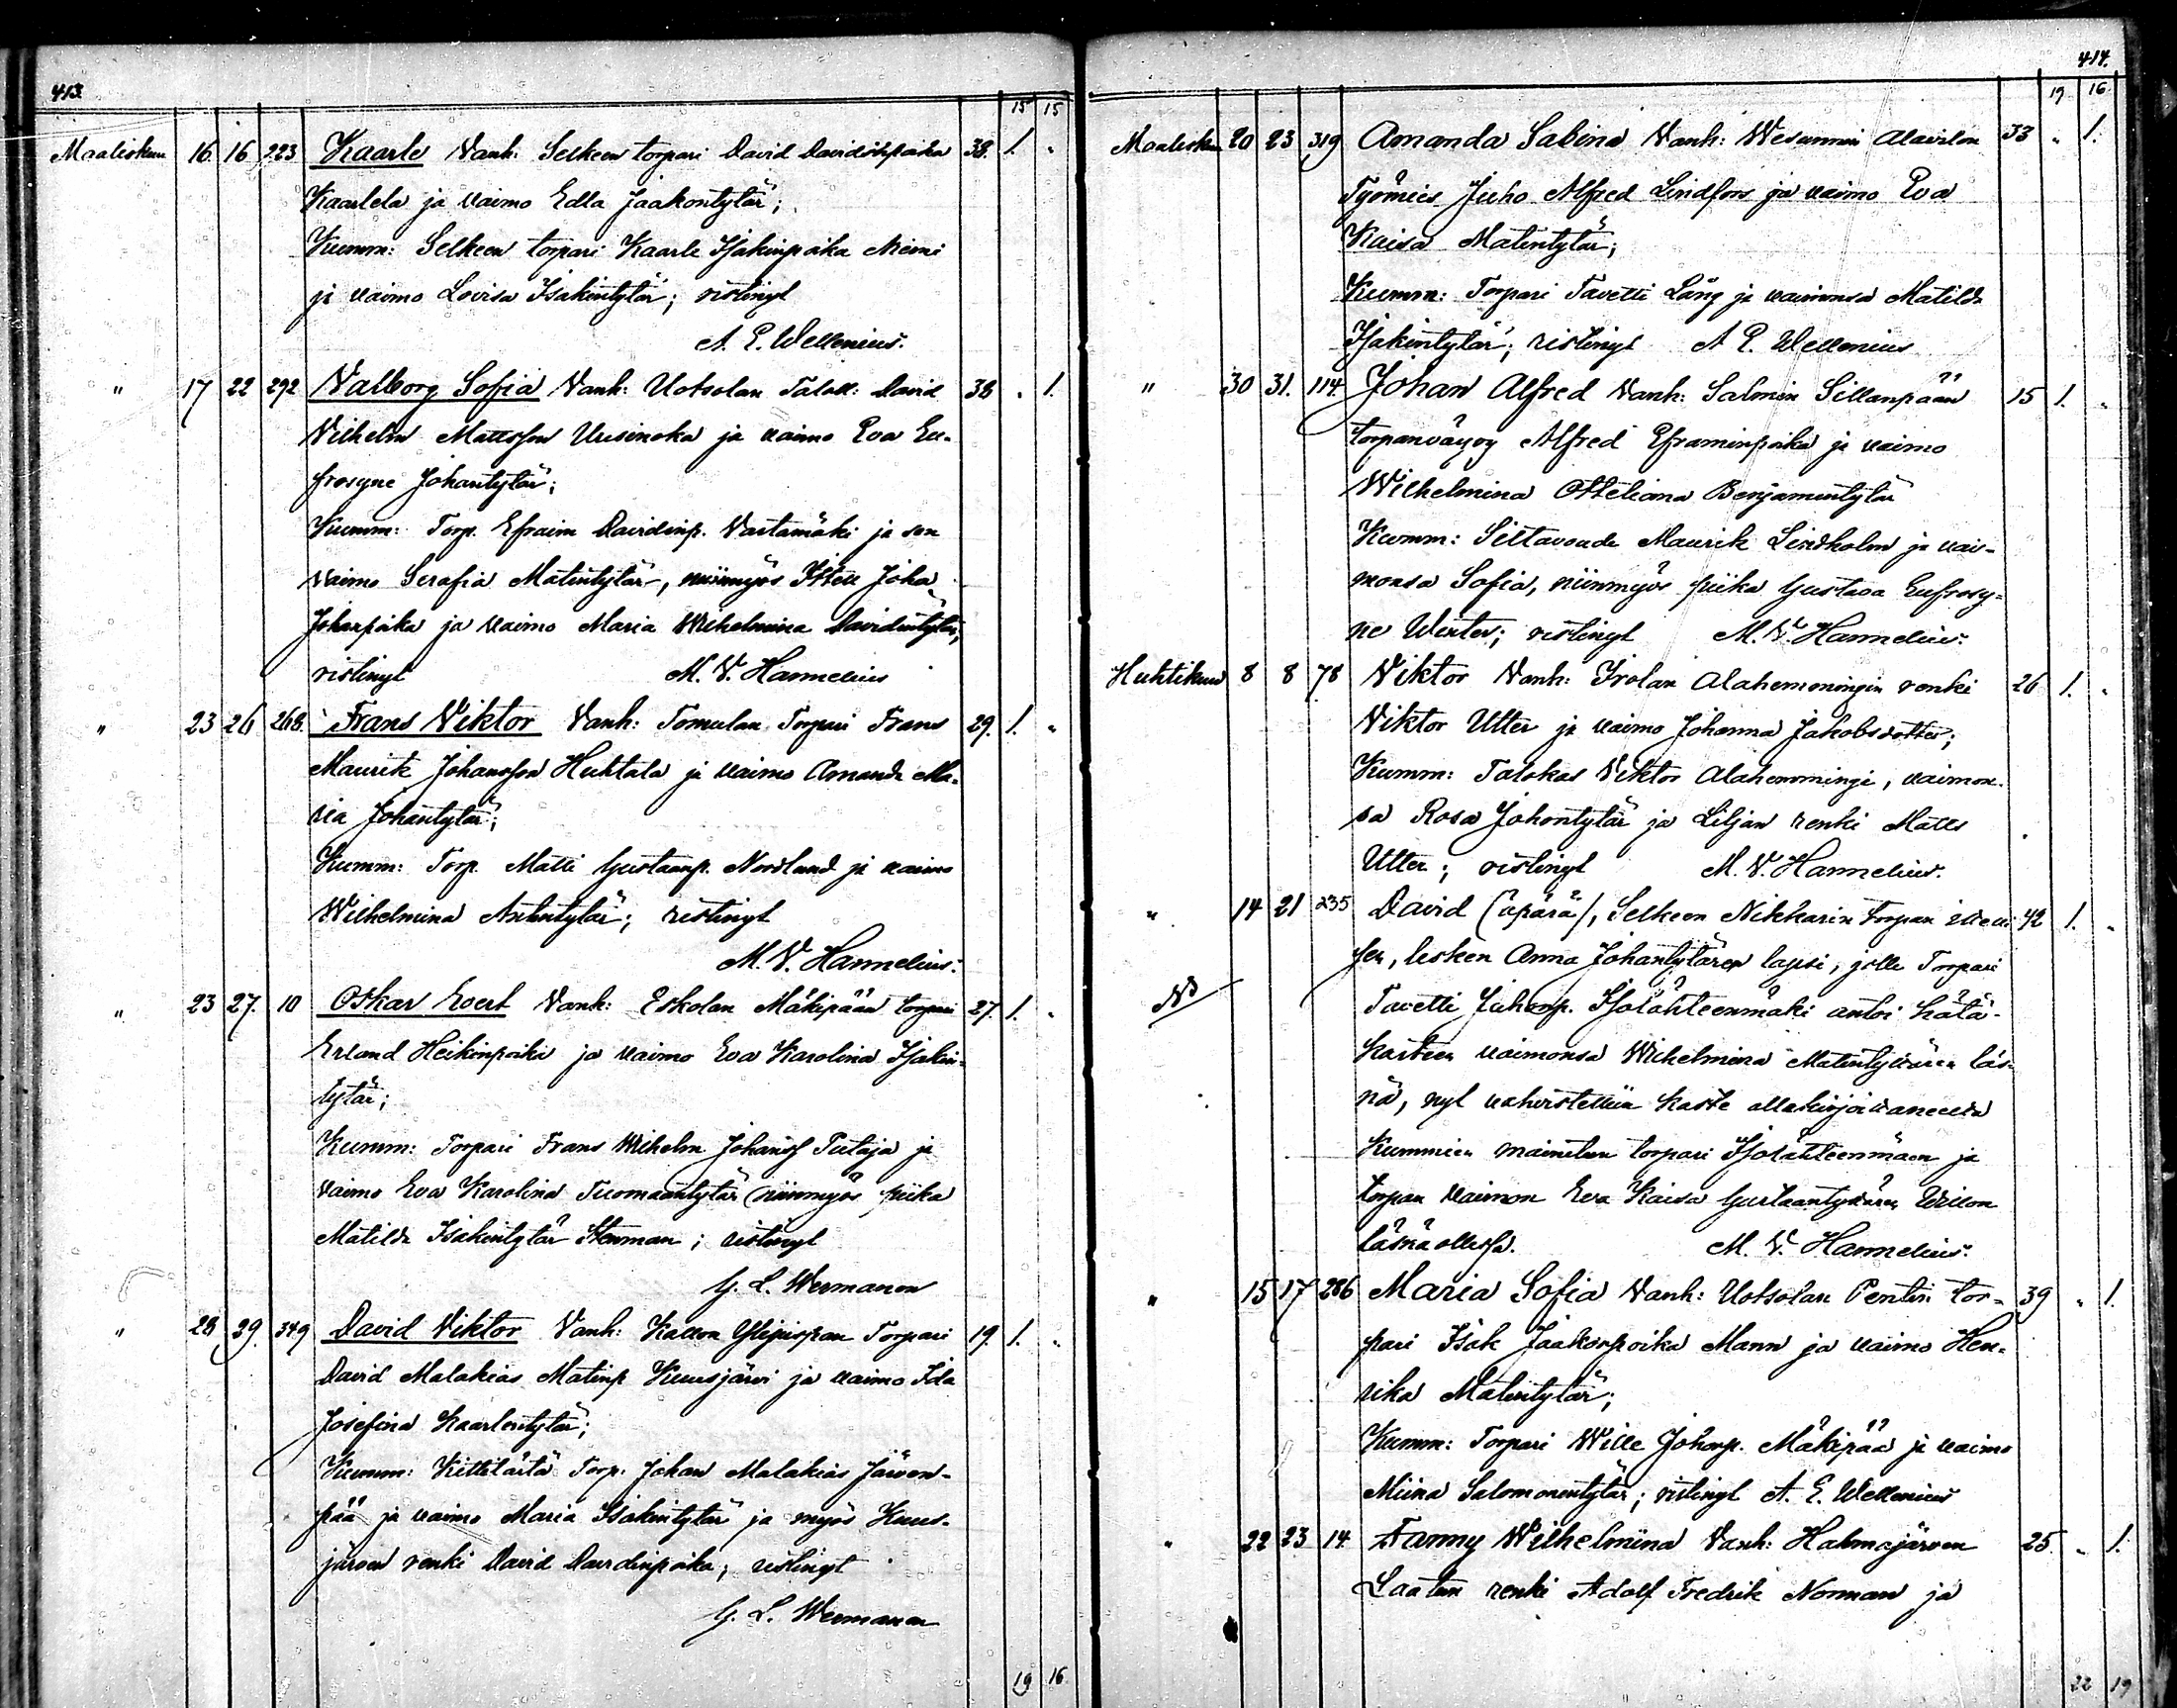 413.
15 15
Maaliskuu 16. 16 223 Kaarle Vanh: Selkeen torpari David Davidinpoika 38. 1. "
Kaarlela ja vaimo Edla Jaakontytär;
Kumm: Selkeen torpari Kaarle Isakinpoika Niemi
ja vaimo Lovisa Isakintytär; ristinyt
A. E. Wellenius.
" 17 22 292 Valborg Sofia Vanh: Uotsolan Taloll: David 38 " 1.
Vilhelm Mattsson Uusinoka ja vaimo Eva Eu-
frosyne Johantytär;
Kumm: Torp. Efraim Davidinp. Vartamäki ja sen
vaimo Serafia Matintytär, niinmyös Itsell Joha
Johanpoika ja vaimo Maria Wilhelmina Davidintytär,
ristinyt M. V. Hannelius
" 23 26 268. Frans Viktor Vanh: Tomulan Torpari Frans 29. 1. "
Maurits Johansson Huhtala ja vaimo Amanda Ma-
ria Johantytär;
Kumm: Torp. Matti Gustaanp. Nordlund ja vaimo
Wilhelmina Antintytär; ristinyt
M. V. Hannelius.
" 23 27. 10 Oskar Evert Vanh: Eskolan Mäkipään torpari 27. 1. "
Erland Heikinpoika ja vaimo Eva Karolina Isakin-
tytär;
Kumm: Torpari Frans Wilhelm Johanss Putaja ja
vaimo Eva Karolina Tuomaantytär niinmyös piika
Matilda Isakintytär Stenman; ristinyt
G. L. Wermanen
" 28 29. 349 David Viktor Vanh: Kallon Ylipispan Torpari 19. 1. "
David Malakias Matinp Kuusjärvi ja vaimo Ida
Josefina Kaarlentytär;
Kumm: Kittilästä Torp. Johan Malakias Järven-
pää ja vaimo Maria Isakintytär ja myös Kuus-
järven renki David Davidinpoika; ristinyt
G. L. Wermanen
19 16
414.
19 16
Maaliskuu 20 23 319 Amanda Sabina Vanh: Wesunnin Alavilon 33 " 1.
Työmies Juho Alfred Lindfors ja vaimo Eva
Kaisa Matintytär;
Kumm: Torpari Tavetti Lång ja vaimonsa Matilda
Isakintytär; ristinyt A. E. Wellenius
" 30 31. 114. Johan Alfred Vanh: Salmin Sillanpään 15 1. "
torpanvävyy Alfred Eframinpoika ja vaimo
Wilhelmina Otteliana Benjamintytär
Kumm: Siltavoude Maurits Lindholm ja vai-
monsa Sofia, niinmyös piika Gustava Eufrosy-
ne Winter; ristinyt M. V. Hannelius.
Huhtikuu 8 8 78 Viktor Vanh: Irolan Alahemmingin renki 26 1. "
Viktor Utter ja vaimo Johanna Jakobsdotter;
Kumm: Talokas Viktor Alahemmingi, vaimon-
sa Rosa Johontytär ja Liljan renki Matts
Utter; ristinyt M. V. Hannelius.
" 14 21 235 David (äpärä), Selkeen Nikkarin torpan itselli- 42 1. "
sen, lesken Anna Johantytären lapsi, jolle Torpari
NB Tavetti Juhonp. Isolähteenmäki antoi hätä-
kasteen vaimonsa Wilhelmina Matintyttären läs-
nä, nyt vahvistettiin kaste allekirjoittaneelta
Kummien mainitun torpari Isolähteenmäen ja
torpan vaimon Eva Kaisa Gustaantyttären Willon
läsnäollessa. M. V. Hannelius.
" 15 17 286 Maria Sofia Vanh: Uotsolan Pentin tor- 39 " 1.
pari Isak Jaakonpoika Mann ja vaimo Hen-
rika Matintytär;
Kumm: Torpari Wille Johanp. Mäkipää ja vaimo
Miina Salomonintytär; ristinyt A. E. Wellenius
" 22 23 14 Fanny Wilhelmina Vanh: Halmejärven 25. " 1.
Laatun renki Adolf Fredrik Norman ja
22 19